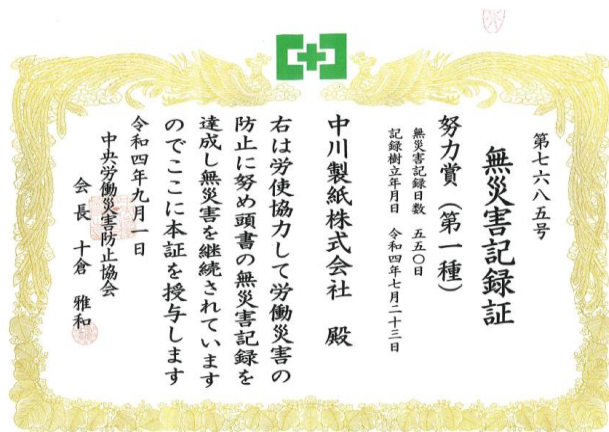 第七六八五号
無災害記録証
努力賞(第一種)
無災害記録日数 五五〇日
記録樹立年月日 令和四年七月二十三日
中川製紙株式会社 殿
右は労使協力して労働災害の
防止に努め頭書の無災害記録を
達成し無災害を継続されています
のでここに本証を授与します
令和四年九月一日
中央労働災害防止協会
会長 十倉 雅和